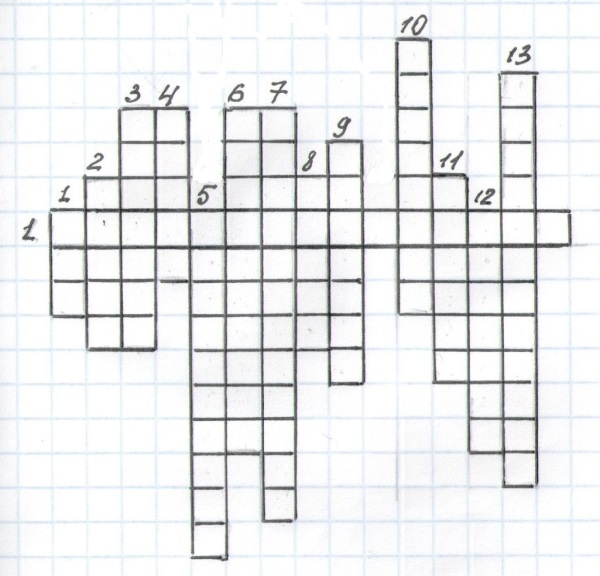 10
13
3 4 6 7
9
2 8 11
1 5 12
1